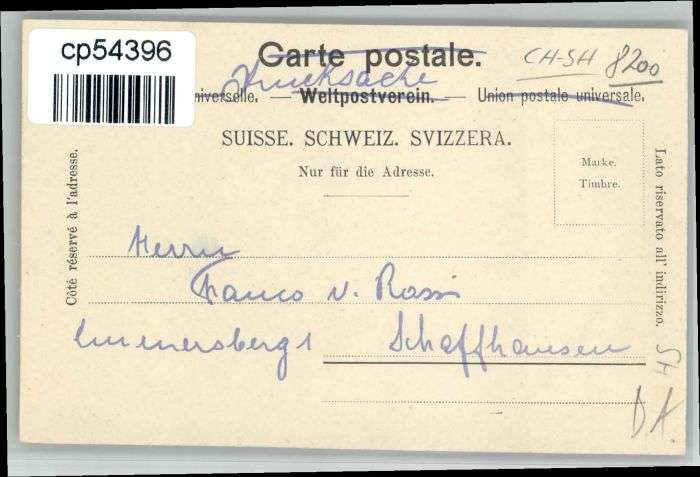 cp54396
Carte postale.
Drucksache
CH-SH 8200
niverselle. — Weltpostverein. — Union postale universale.
SUISSE. SCHWEIZ. SVIZZERA.
Nur für die Adresse.
Marke.
Timbre.
Côté réservé à l'adresse.
Lato riservato all' indirizzo.
Herrn
Franco v. Rossi
Emmersberg 1 Schaffhausen
SH
D.K.